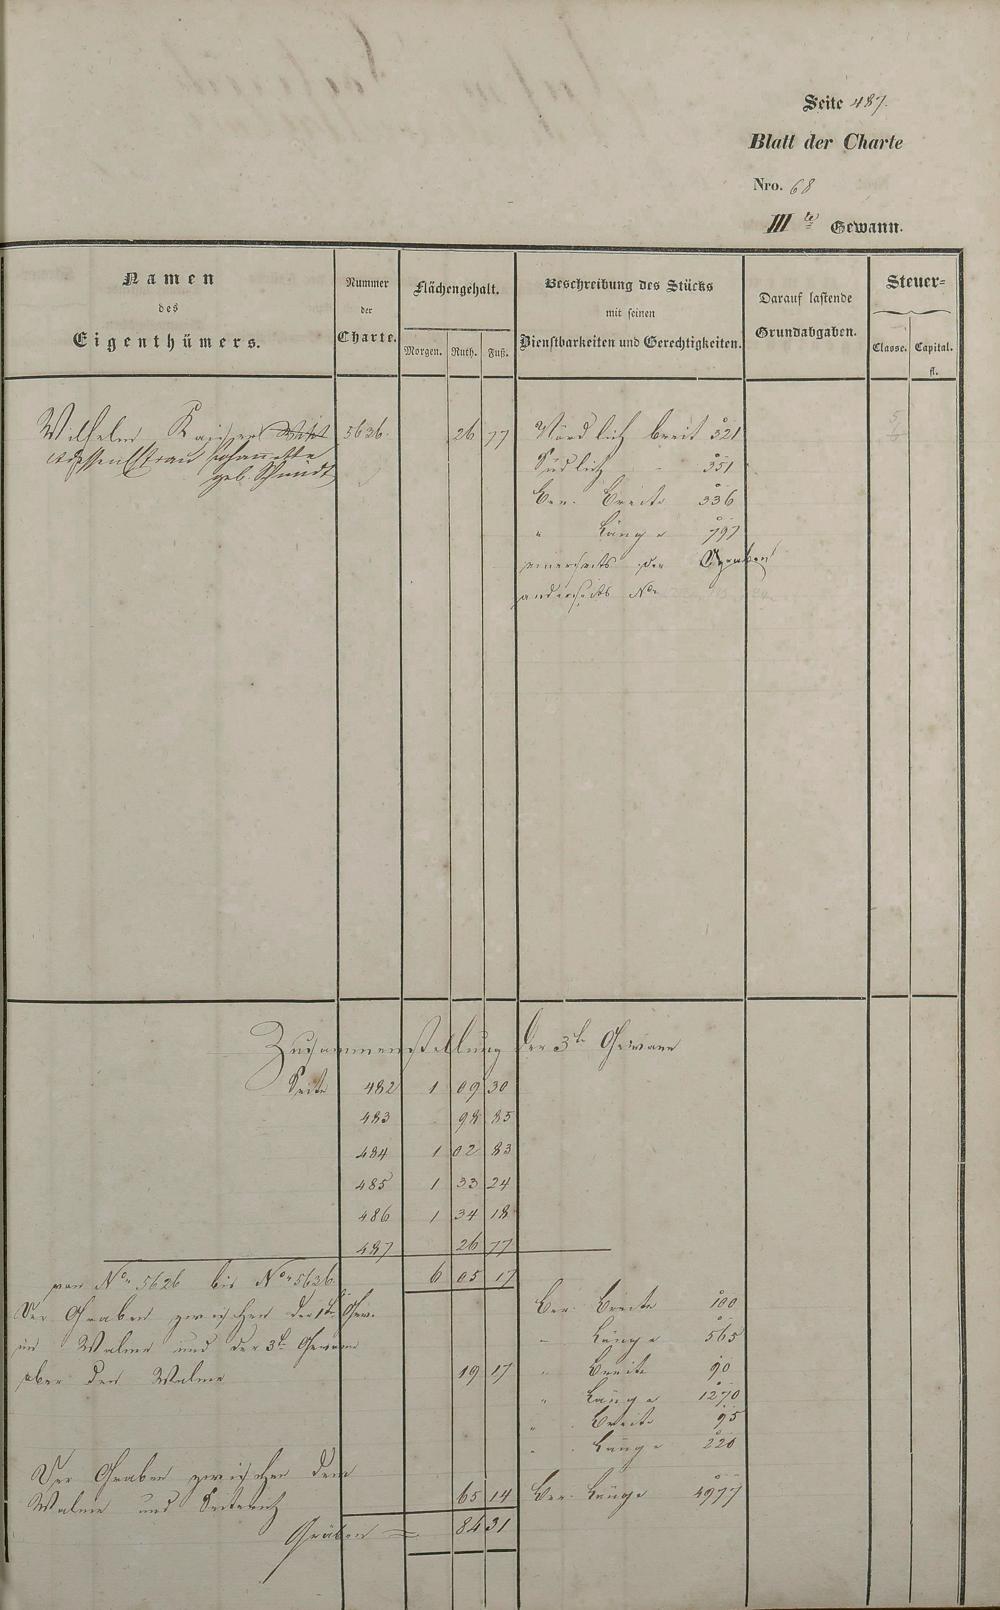 Seite 487.
Blatt der Charte
Nro. 68
III te Gewann.
Namen
des
Eigenthümers.
Nummer
der
Charte.
Flächengehalt.
Morgen. Ruth. Fuß.
Beschreibung des Stücks
mit seinen
Dienstbarkeiten und Gerechtigkeiten.
Darauf lastende
Grundabgaben.
Steuer-
Classe. Capital.
fl.
Wilhelm Kaiser 5636. 26 77 Nördlich breit 321
dessen Ehefrau Johannette Südlich - 351
geb. Schmidt
Ber. Breite 336
" Länge 797
einerseits der Graben
anderseits Nro
Zusammenstellung der 3te Gewann
Seite 482 1 09 30
483 98 85
484 1 02 83
485 1 33 24
486 1 34 18
487 26 77
von Nro 5626 bis Nro 5636. 6 05 17
Der Graben zwischen der 1te Gew. Ber. Breite 100
im Walme und der 3te Gewann - Länge 565
ober der Walme 19 17 " Breite 90
" Länge 1270
" Breite 95
" Länge 220
Der Graben zwischen dem
Walme und 65 14 Ber. Länge 4977
Gräben = 84 31